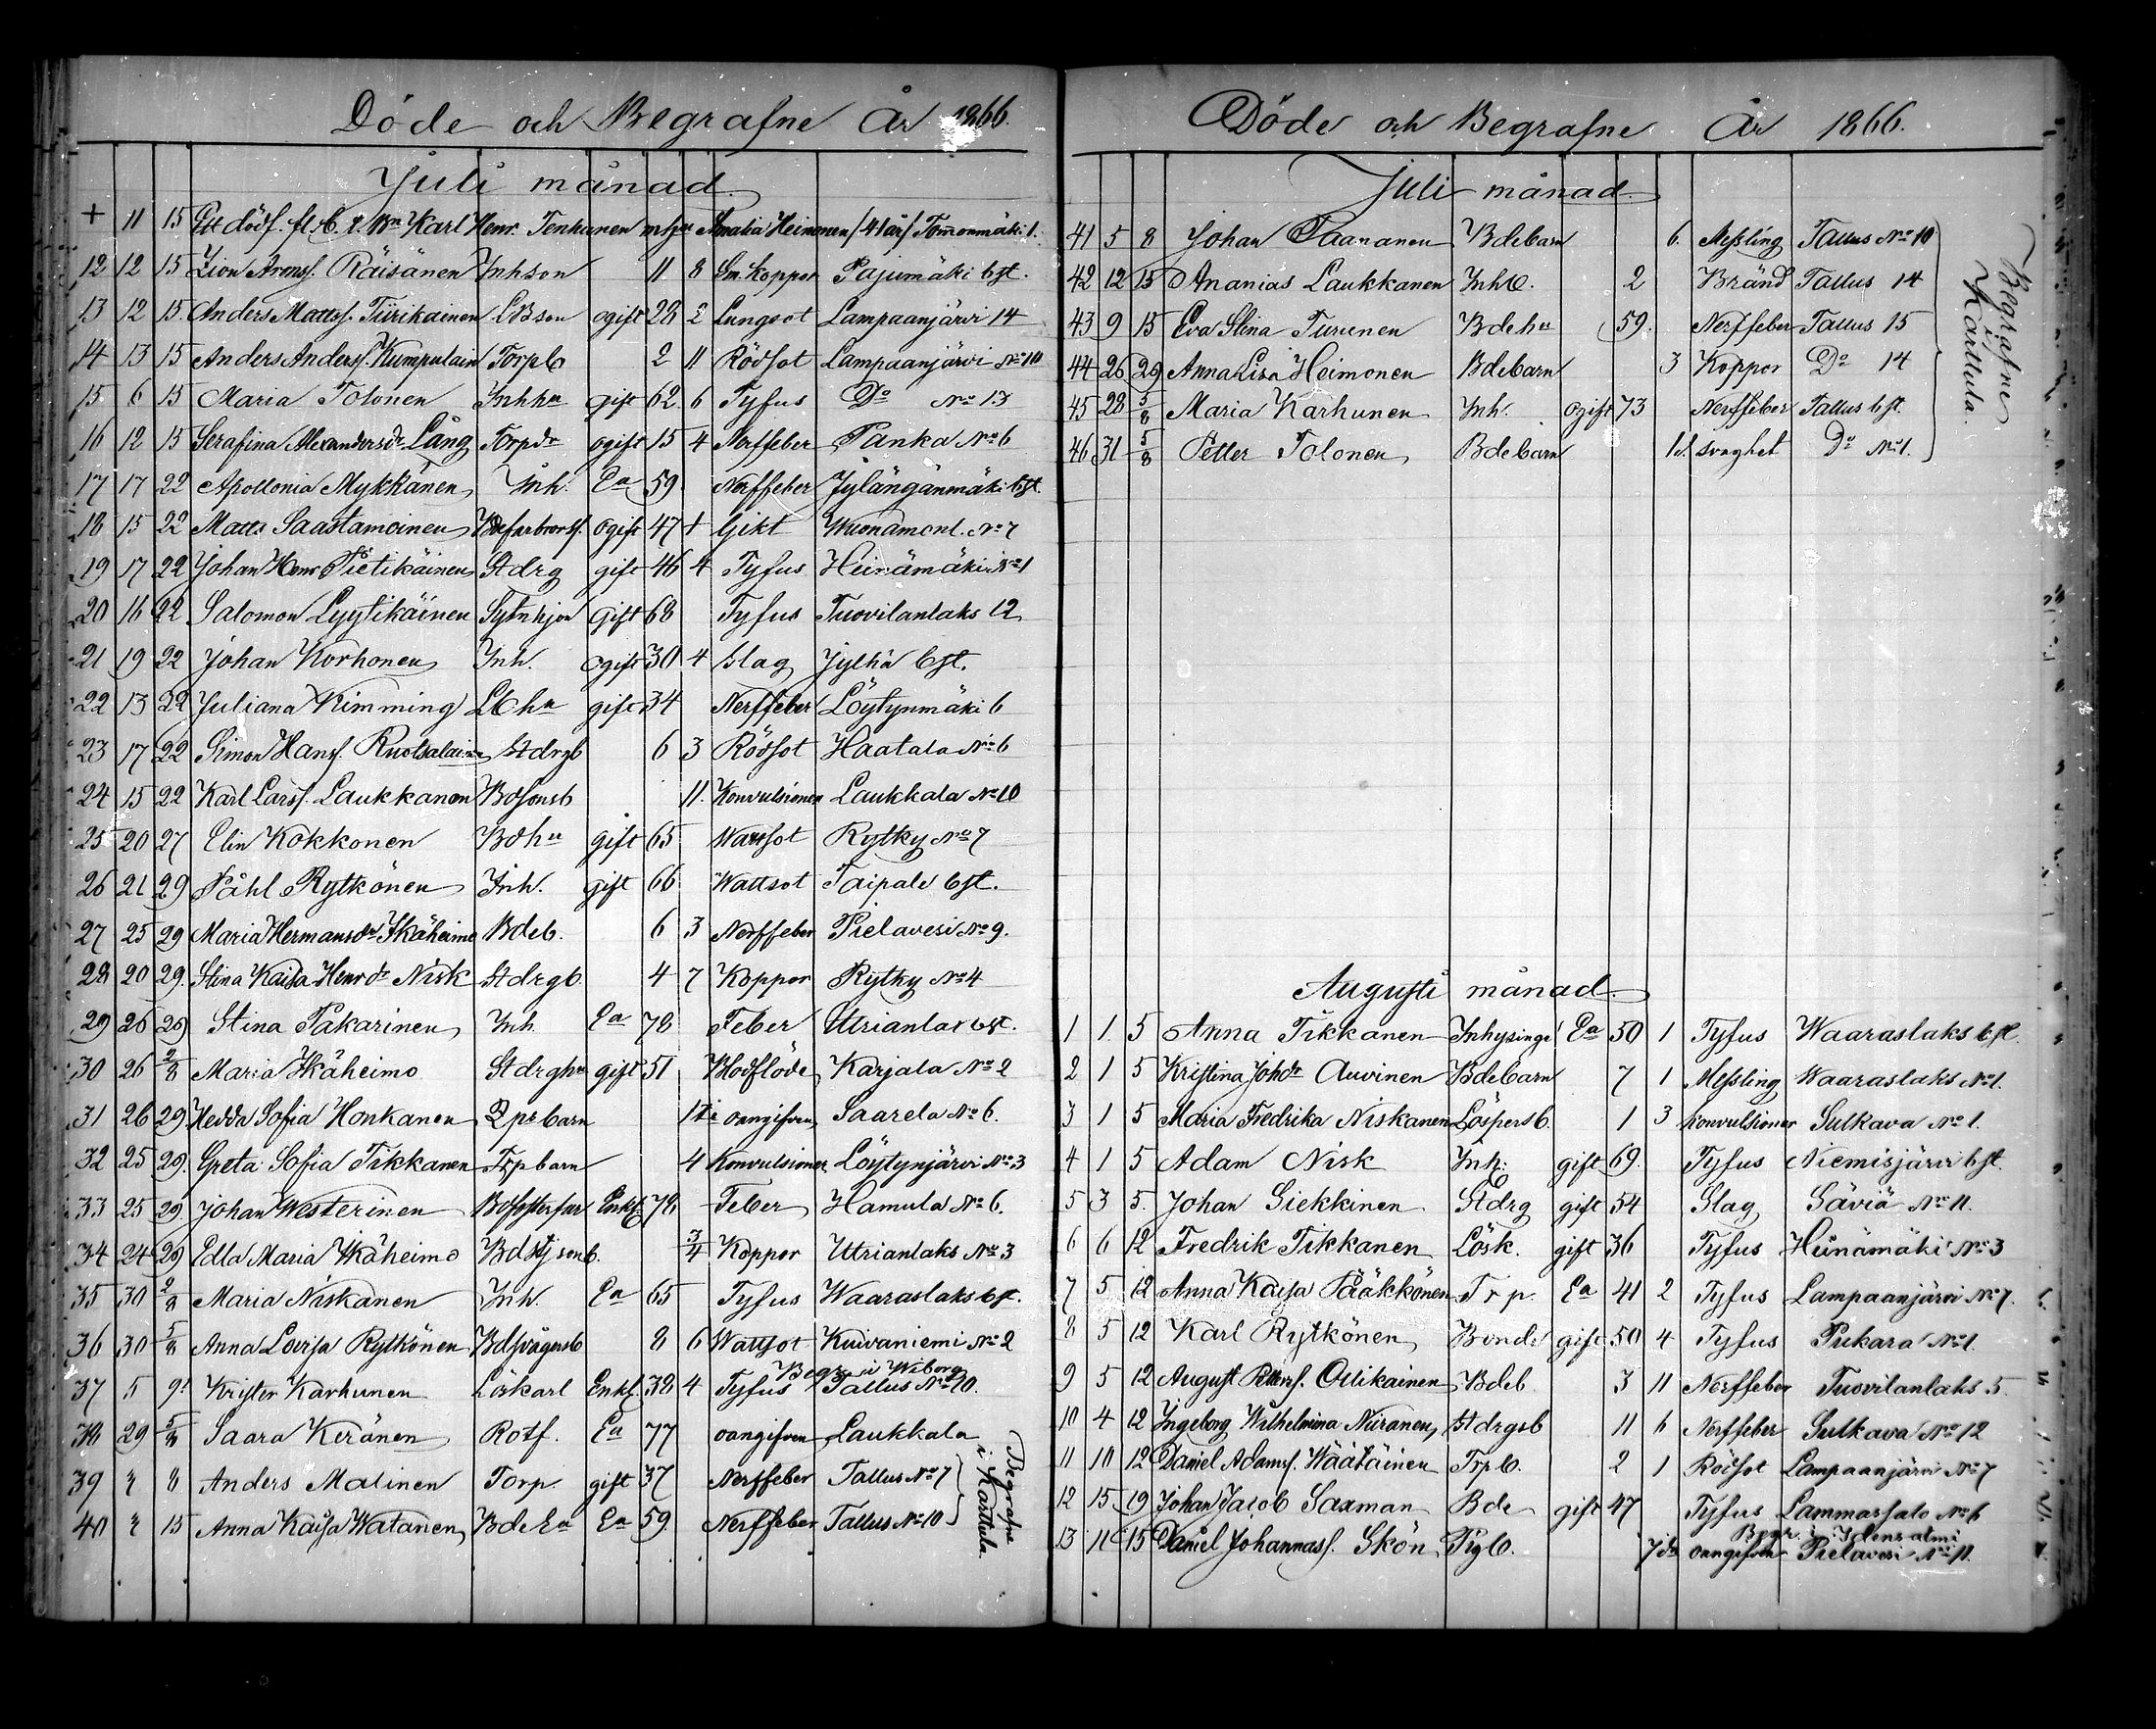 Döde och Begrafne År 1866.
Juli månad
+ 11 15 Ett dödf. fl. b. t. Bn Karl Henr. Tenhunen m hu Amalia Heinonen (41 år) Tommonmäki 1.
12 12 15 Zion Aronsf. Räisänen Inhson 11 8 Sm. koppor Pajumäki bst.
13 12 15 Anders Mattsf. Tiirikainen LBson ogift 28 2 Lungsot Lampaanjärvi 14
14 13 15 Anders Andersf. Kumpulain Torpb 2 11 Rödsot Lampaanjärvi No 10
15 6 15 Maria Tolonen Inhhu gift 62 6 Tyfus Do No 13
16 12 15 Serafina Alexandersdr Lång Torpdr ogift 15 4 Nerffeber Panka No 6
17 17 22 Apollonia Mykkänen Inh. Ea 59 Nerffeber Jylängänmäki bst.
18 15 22 Matts Saastamoinen Bdefarbrorsf. ogift 47 + Gikt Wuonamonl. No 7
19 17 22 Johan Henr Pietikäinen Stdrg gift 46 4 Tyfus Heinämäki No 1
20 16 22 Salomon Lyytikäinen Sytnhjon gift 68 Tyfus Tuovilanlaks 12
21 19 22 Johan Korhonen Inh. ogift 30 4 Slag Jylhä bst.
22 13 22 Juliana Kimming Lbhu gift 34 Nerffeber Löytynmäki 6
23 17 22 Simon Hansf. Ruotsalainen Stdrgb 6 3 Rödsot Haatala No 6
24 15 22 Karl Larsf. Laukkanen Bdsonsb 11. Konvulsioner Laukkala No 10
25 20 27 Elin Kokkonen Bdhu gift 65 Wattsot Rytky No 7
26 21 29 Påhl Rytkönen Inh. gift 66 Wattsot Taipale bst.
27 25 29 Maria Hermansdr Ikäheimo Bdeb. 6 3 Nerffeber Pielavesi No 9.
28 20 29. Stina Kaisa Henrdr Nisk Stdrgb. 4 7 Koppor Rytky No 4
29 26 29 Stina Pakarinen Inh. Ea 78 Feber Utrianlax bst.
30 26 2/8 Maria Ikäheimo Stdrghu gift 51 Blodflöde Karjala No 2
31 26 29. Hedda Sofia Honkanen barn oangifven Saarela No 6.
32 25 29. Greta Sofia Tikkanen Trpbarn 4 Konvulsioner Löytynjärvi No 3
33 25 29. Johan Westerinen Enkf. 78 Feber Hamula No 6.
34 24 29 Edla Maria Ikäheimo 3/4 Koppor Utrianlaks No 3
35 30 2/8 Maria Niskanen Inh. Ea 65 Tyfus Waaraslaks bst.
36 30 5/8 Anna Lovisa Rytkönen Bdsvågersb 8 6 Wattsot Kuivaniemi No 2
Begr. i Wiborg
37 5 9 Krister Karhunen Löskarl Enkf. 38 4 Tyfus Tallus No 10.
38 29 5/8 Saara Keränen Rotf. Ea 77 oangifven Laukkala
39 8 Anders Malinen Torp. gift 37 Nerffeber Tallus No 7
40 15 Anna Kaisa Watanen Bde Ea Ea 59 Nerffeber Tallus No 10
Begrafne i Karttula.
Döde och Begrafne År 1866.
Juli månad
41 5 8 Johan Paananen Bdebarn 6. Messling Tallus No 10
42 12 15 Ananias Laukkanen Inhb. 2 Bränd Tallus 14
43 9 15 Eva Stina Turunen Bdehu 59. Nerffeber Tallus 15
44 26 29 Anna Lisa Heimonen Bdebarn 3 Koppor Do 14
45 28 5/8 Maria Karhunen Inh. ogift 73 Nerffeber Tallus bst.
46 31 5/8 Petter Tolonen Bdebarn 1d. svaghet Do No 1.
Begrafne i Karttula.
Augusti månad
1 1 5 Anna Tikkanen Inhysinge Ea 50 1 Tyfus Waaraslaks bst.
2 1 5 Kristina Johdr Auvinen Bdebarn 7 1 Messling Waaraslaks No 1.
3 1 5 Maria Fredrika Niskanen Löspersb. 1 3 Konvulsioner Sulkava No 1.
4 1 5 Adam Nisk Inh. gift 69. Tyfus Niemisjärvi bst.
5 3 5. Johan Siekkinen Stdrg gift 54 Slag Säviä No 11.
6 6 12 Fredrik Tikkanen Lösk. gift 36 Tyfus Heinämäki No 3
7 5 12 Anna Kaisa Pääkkönen Trp. Ea 41 2 Tyfus Lampaanjärvi No 7.
8 5 12 Karl Rytkönen Bonde gift 50 4 Tyfus Pukara No 1.
9 5 12 August Pettersf. Ollikainen Bdeb 3 11 Nerffeber Tuovilanlaks 5.
10 4 12 Ingeborg Wilhelmina Niiranen Stdrgsb 11 6 Nerffeber Sulkava No 12
11 10 12 Daniel Adamsf. Wäätäinen Trpb. 2 1 Rödsot Lampaanjärvi No 7
12 15 19 Johan Jacob Saxman Bde gift 47 Tyfus Lammassalo No 6
Begr. i Idensalmi
13 11 15 Daniel Johannasf. Skön Pigb. 7 da oangifven Pielavesi No 11.